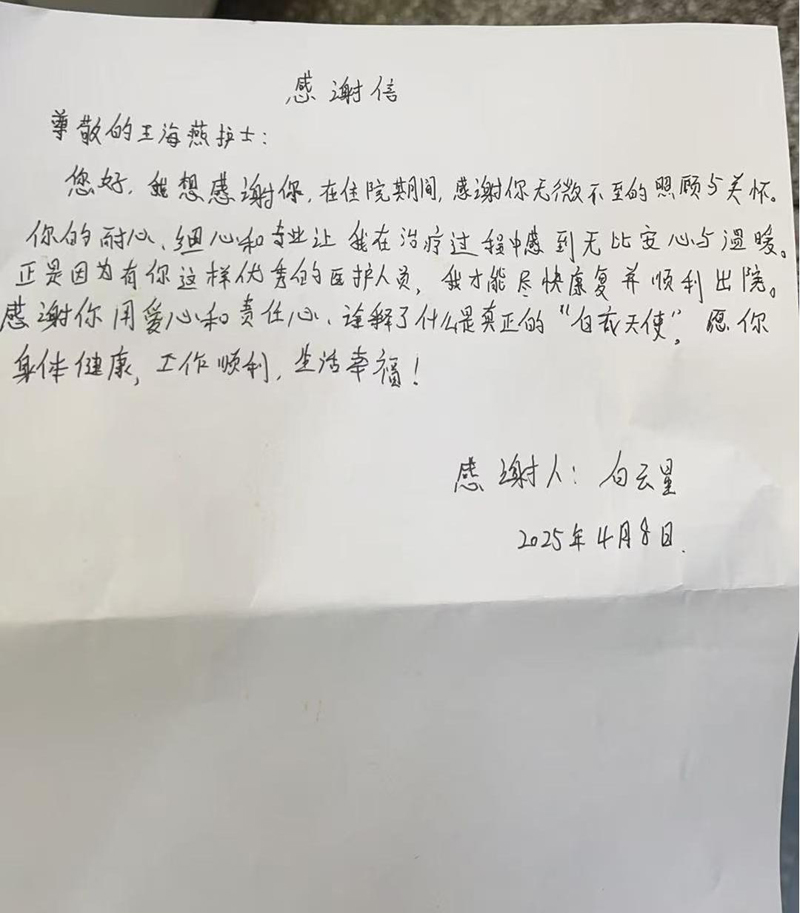 感谢信
尊敬的王海燕护士：
您好，我想感谢你，在住院期间，感谢你无微不至的照顾与关怀。
你的耐心、细心和专业让我在治疗过程中感到无比安心与温暖。
正是因为有你这样优秀的医护人员，我才能尽快康复并顺利出院。
感谢你用爱心和责任心、诠释了什么是真正的“白衣天使”，愿你
身体健康，工作顺利，生活幸福！
感谢人：白云星
2025年4月8日.